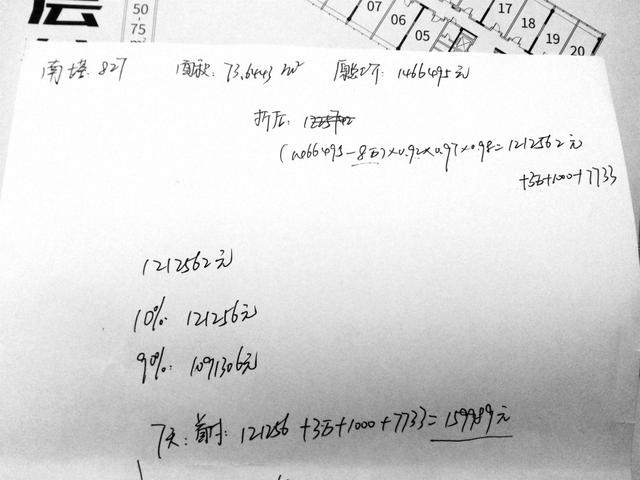 层
50
-
75
m²
07
06
05
17
18
19
20
南塔: 827 面积: 73.6443 m² 原总价: 1466495元
折后:
(1466495-8万)×0.92×0.97×0.98=1212562元
+3万+1000+7733
1212562元
10%: 121256元
90%: 1091306元
7天: 首付: 121256 +3万+1000+7733=159989元